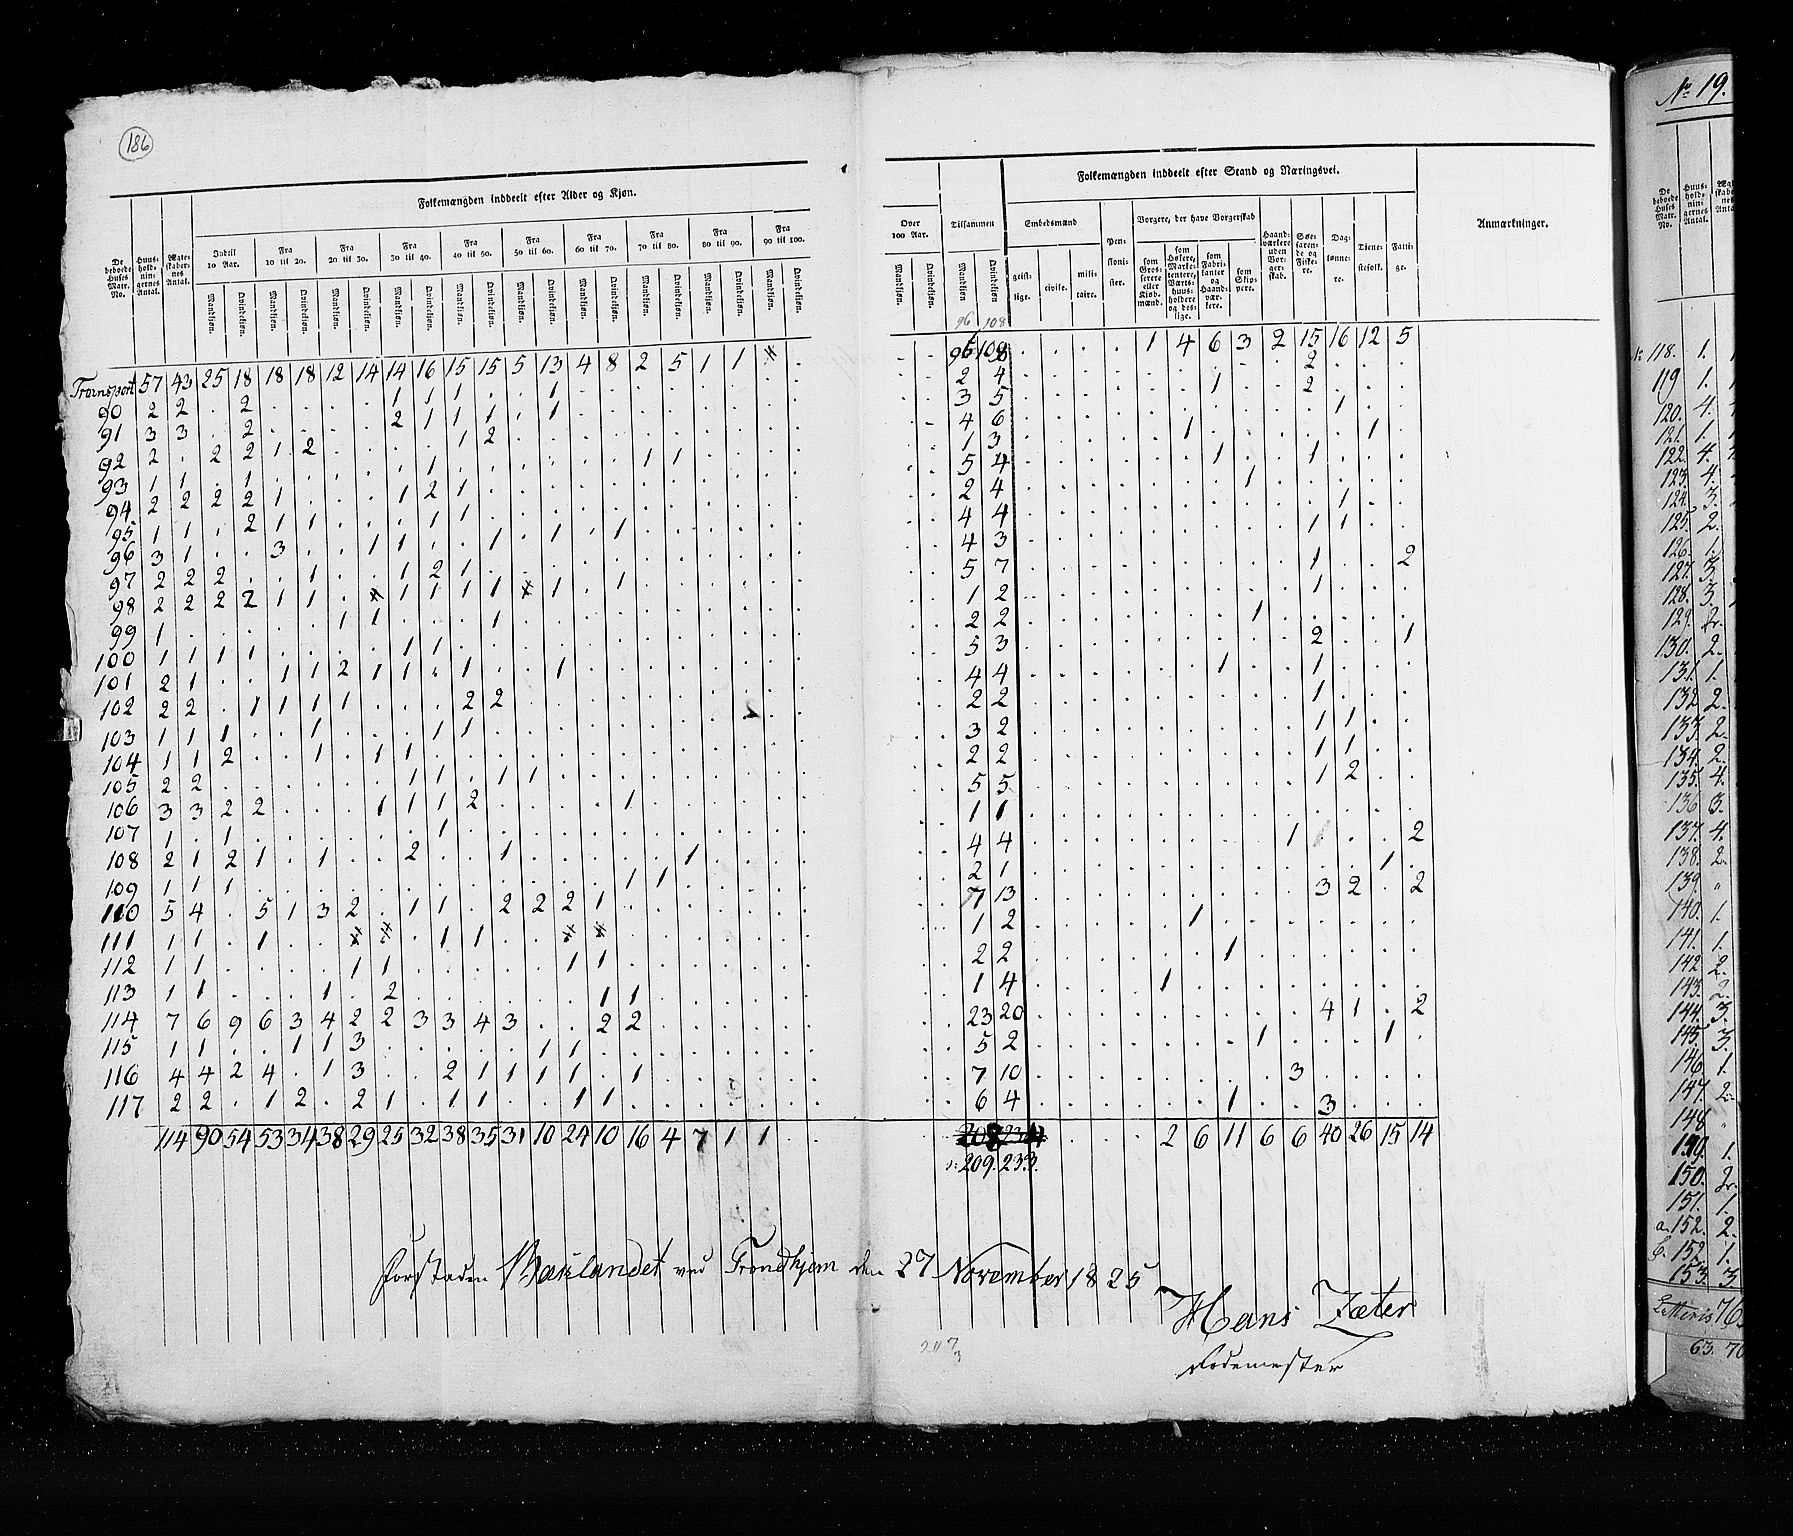 186
Folkemængden inddeelt efter Alder og Kjøn.
De beboede Huses Matr. No.
Huus-hold-nin-gernes Antal.
Ægte-skaber-nes Antal.
Indtil 10 Aar. Fra 10 til 20. Fra 20 til 30. Fra 30 til 40. Fra 40 til 50. Fra 50 til 60. Fra 60 til 70. Fra 70 til 80. Fra 80 til 90. Fra 90 til 100.
Mandkjøn. Qvindekjøn. Mandkjøn. Qvindekjøn. Mandkjøn. Qvindekjøn. Mandkjøn. Qvindekjøn. Mandkjøn. Qvindekjøn. Mandkjøn. Qvindekjøn. Mandkjøn. Qvindekjøn. Mandkjøn. Qvindekjøn. Mandkjøn. Qvindekjøn. Mandkjøn. Qvindekjøn.
Transport 57 43 25 18 18 18 12 14 14 16 15 15 5 13 4 8 2 5 1 1
90 2 2 . 2 . . . . 1 1 1 . . 1
91 3 3 . 2 . . . . 2 1 1 1 . 1
92 2 . 2 2 1 2 . . . . 1 2
93 1 1 . 1 . . . . . 1 . . . . . . 1 1
94 2 2 2 2 1 . . . 1 2 1
95 1 1 . 2 1 1 . . . 1 1
96 3 1 . . 3 . . 1 1 . . 1 . 1 . 1
97 2 2 2 . . 1 . . 1 2 1
98 2 2 2 2 1 1 . . 1 1 1 1 . 1 . 1
99 1 . . . . . 1 1 . . . 1
100 1 1 1 1 . . . . 1 1
101 2 1 . . 1 1 2 1 1 . 1 . . 1
102 2 2 . 1 1 1 1 . . . 2 2
103 1 1 1 . . 1 . . . 1 1
104 1 1 2 . . 1 . 1 1
105 2 2 . . . . . . 1 1 . 1 1
106 3 3 2 2 . . . 1 1 1 2 . . . . 1
107 1 . 1 . . . . . . 1
108 2 1 2 1 . 1 . . 2 . . 1 . . . . . 1
109 1 1 1 . . . . . . . . . . . . 1 1
110 5 4 . 5 1 3 2 . 1 1 . 2 2 2 1
111 1 1 . 1 . . . . . 1 1
112 1 1 . . . . 1 1 . . . . . 1 1
113 1 1 . . . 1 . 2 . . . . . . 1 1
114 7 6 9 6 3 4 2 2 3 3 4 3 . . 2 2
115 1 1 . . 1 1 3 . . . . . 1 1
116 4 4 2 4 . 1 3 . . 2 1 1 1 1 . 1
117 2 2 . 1 2 . 2 1 . 1 1 . . 1 1
114 90 54 53 34 38 29 25 32 38 35 31 10 24 10 16 4 7 1 1
Over 100 Aar.
Mandkjøn. Qvindekjøn.
Tilsammen
Mandkjøn Qvindekjøn
Folkemængden inddeelt efter Stand og Næringsvei.
Embedsmænd
geist-lige. civile. mili-taire.
Pen-sioni-ster.
Borgere, der have Borgerskab
som Gros-serere eller Kjøb-mænd.
som Høkere, Marke-tentere, Værts-huus-holdere og des-lige.
som Fabri-kanter og Haand-vær-kere.
som Skip-pere.
Haand-værkere uden Bor-ger-skab.
Søe-faren-de og Fiske-re.
Dag-lønne-re.
Tiene-stefolk.
Fatti-ge.
Anmærkninger.
96 108
96 108 . . . . 1 4 6 3 2 15 16 12 5
2 4 2
3 5 1 2
4 6 1
1 3 1 1
5 4 1 1
2 4 1
4 4 1
4 3 1 1
5 7 1 2
1 2 1
2 2 1
5 3 2 1
4 4 1 1
2 2 1
3 2 1 1
2 2 1 1
5 5 1 2
1 1
4 4 1 2
2 1 1
7 13 3 2 . 2
1 2 1
2 2 1
1 4 1
23 20 4 1 . 2
5 2 1 1
7 10 3
6 4 1 3
208 234 . . . 2 6 11 6 6 40 26 15 14
209. 233.
Forstaden Baklandet ved Trondhjem den 27 November 1825
Hans Zæter
Rodemester
207
3
No 19.
De beboede Huses Matr. No.
Huus-hold-nin-gernes Antal.
118. 1.
119 1.
120. 4.
121. 1.
122. 4.
123. 4.
124. 3.
125. 2.
126. 1.
127. 3.
128. 3.
129. 2.
130. 2.
131. 1.
132 2.
133. 2.
134. 2.
135. 4.
136 3.
137. 4.
138. 2.
139. "
140. 1.
141. 1.
142 2.
143. 2.
144. 3.
145. 3.
146. 1.
147. 2.
148 "
149. 1.
150. 2.
151. 1.
a. 152. 2.
b. 152. 1.
153. 3.
63. 70